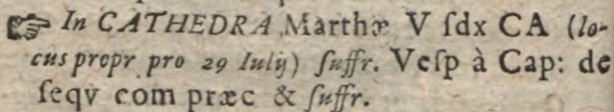 ☞ In CATHEDRA Marthæ V ſdx CA (lo-
cus propr pro 29 Iulij) ſuffr. Veſp à Cap: de
ſeqv com præc & ſuffr.